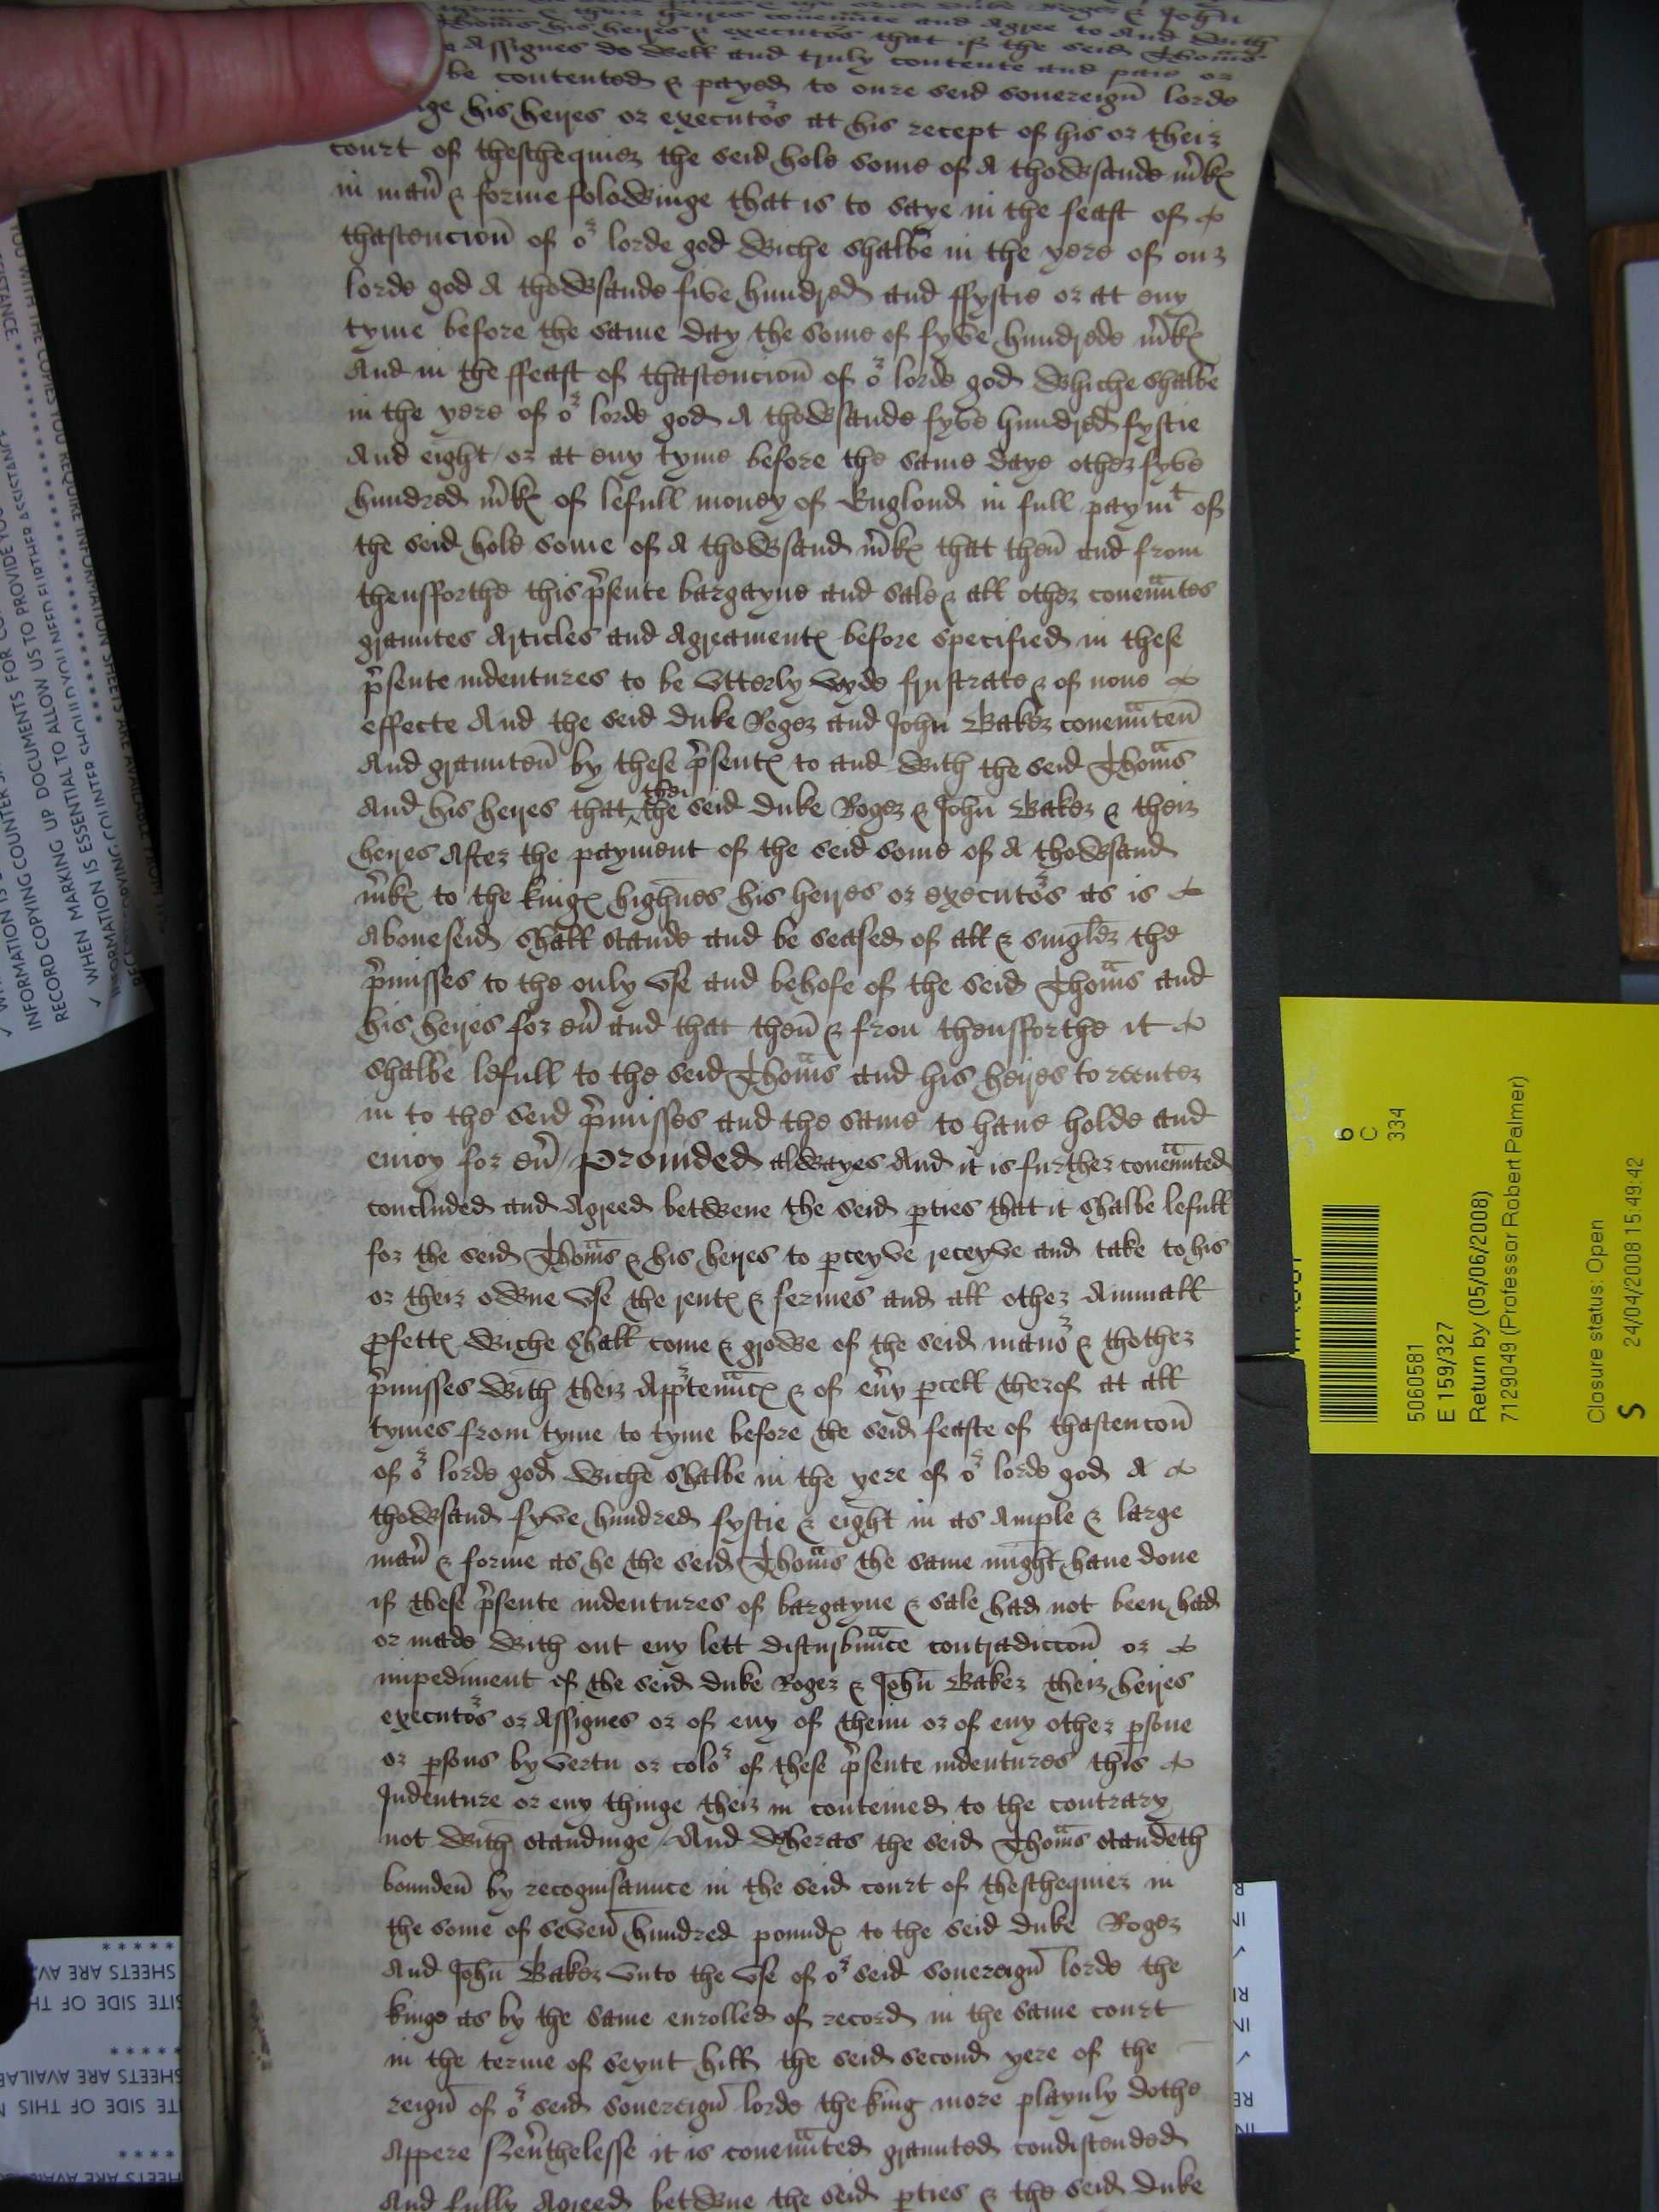 his heyres & executors that if the seid Thoms
Assignes do well and truly contente and paie or
be contented & payed to oure seid souereign lorde
his heyres or executors at his recept of his or their
court of theschequier the seid hole some of A thowsande mrkes
in maner & forme folowinge that is to saye in the feast of
thastencion of or lorde god wiche shalbe in the yere of our
lorde god A thowsande five hundred and ffystie or at eny
tyme before the same day the some of fyve hundrede mrkes
And in the ffeast of thastencion of or lorde god whiche shalbe
in the yere of or lorde god A thowsande fyve hundred fystie
And eight / or at eny tyme before the same daye other fyve
hundred mrkes of lefull money of Englond in full paymt of
the seid hole some of A thowsand mrkes that then and from
thensfforthe this psente bargayne and sale & all other couenntes
grauntes Articles and Agreamentes before specified in these
psente indentures to be vtterly voyde frustrate & of none
effecte And the seid duke Roger and John Baker couennten
And graunten by these psentes to and with the seid Thoms
And his heyres that then the seid duke Roger & John Baker & their
heyres After the payment of the seid some of A thowsand
mrkes to the kinges highnes his heyres or executors as is
Aboueseid / shall stande and be seased of all & singler the
pmisses to the only vse and behofe of the seid Thoms and
his heyres for eu and that then & from thensfforthe it
shalbe lefull to the seid Thoms and his heyres to reenter
in to the seid pmisses and the same to haue holde and
enioy for eu / Prouided alwayes And it is further couennted
concluded and Agreed betwene the seid pties that it shalbe lefull
for the seid Thoms & his heyres to pceyve receyve and take to his
or their owne vse the rentes & fermes and all other Annuall
pfettes wiche shall come & growe of the seid manor & thother
pmisses with their Apptennces & of eny pcell therof at all
tymes from tyme to tyme before the seid feaste of thastencon
of or lorde god wiche shalbe in the yere of or lorde god A
thowsand fyve hundred fystie & eight in as Ample & large
maner & forme as he the seid Thoms the same might haue done
if these psente indentures of bargayne & sale had not been had
or made with out eny lett disturbnce contradiccon or
impediment of the seid duke Roger & John Baker their heyres
executors or Assignes or of eny of them or of eny other psone
or psons by vertu or color of these psente indentures this
Indenture or eny thinge their in conteined to the contrary
not with standinge / And wheras the seid Thoms standeth
bounden by recognisaunce in the seid court of theschequier in
the some of seven hundred poundes to the seid duke Roger
And John Baker vnto the vse of or seid souereign lorde the
kinge as by the same enrolled of record in the same court
in the terme of seynt hill the seid second yere of the
reign of or seid souereign lorde the king more playnly dothe
Appere Neuthelesse it is couennted graunted condistended
And fully Agreed betwne the seid pties & the seid duke
6
C
334
5060581
E 159/327
Return by (05/06/2008)
7129049 (Professor Robert Palmer)
Closure status: Open
S 24/04/2008 15:49:42
INFORMATION IS
RECORD COPYING COUNTER
WHEN MARKING UP DOCUMENTS FOR
IS ESSENTIAL TO ALLOW US TO PROVIDE YOU
SHEETS ARE AVAILABLE FROM